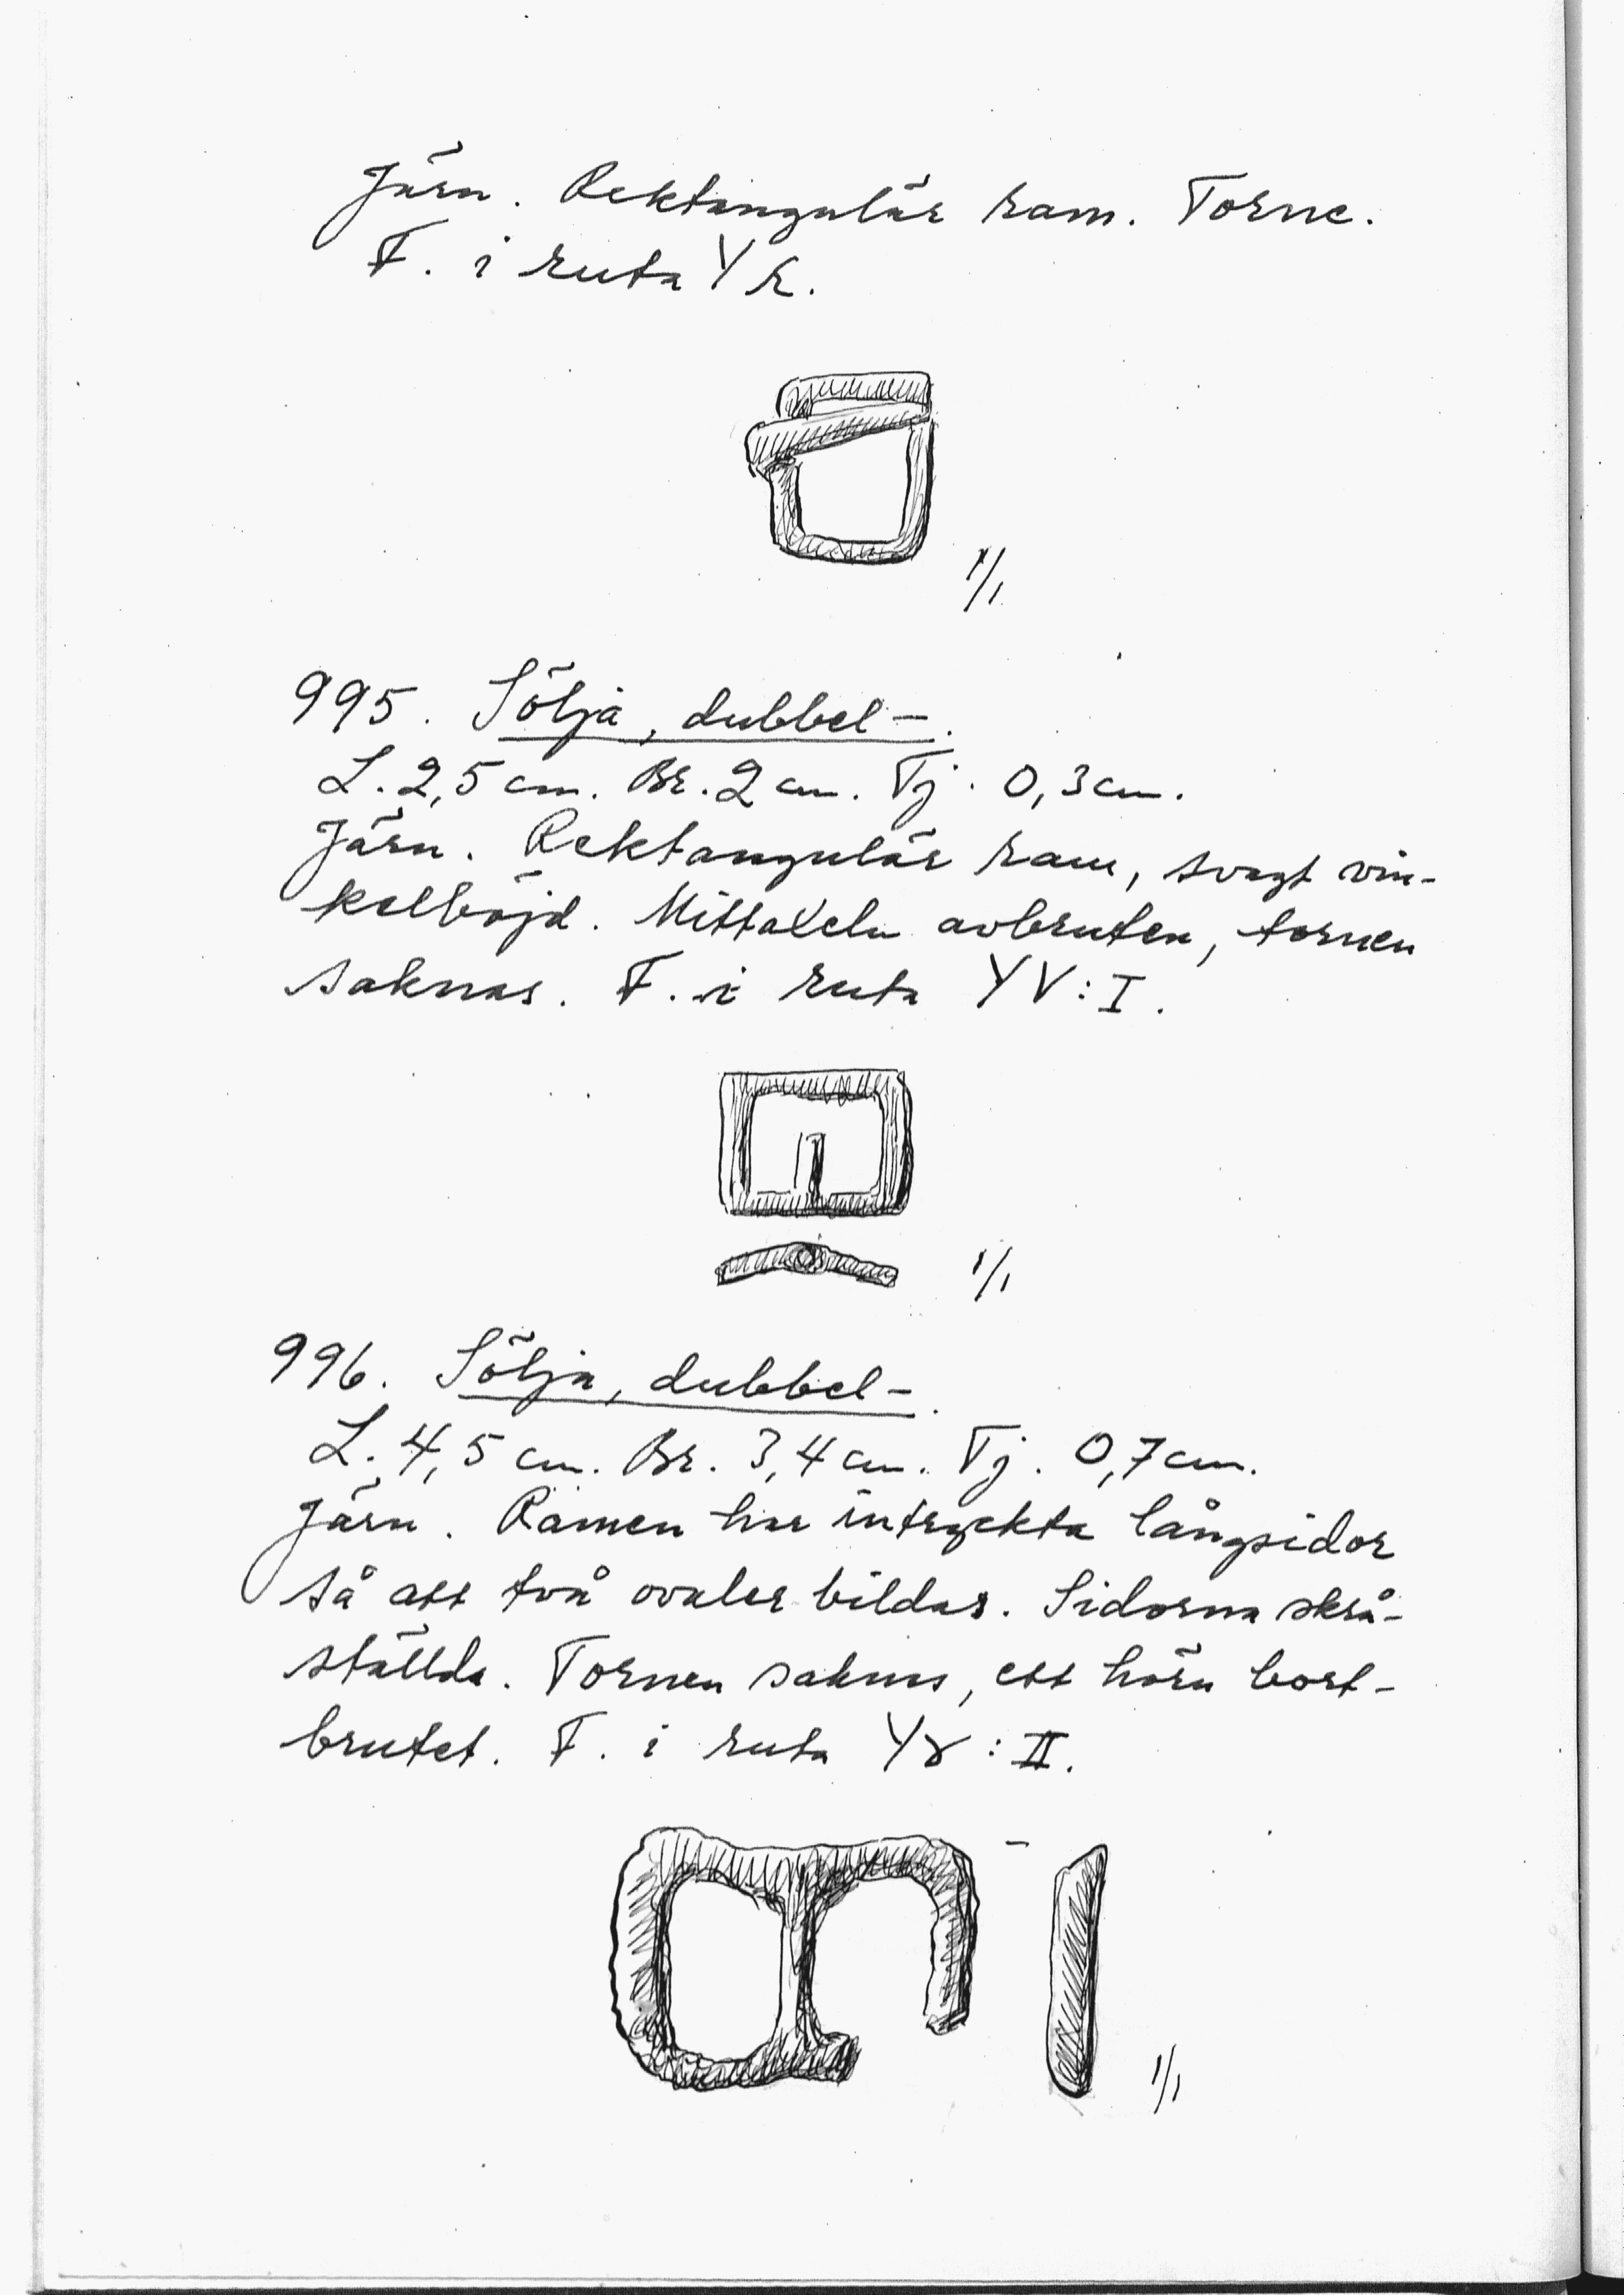 Järn. Rektangulär ram. Torne.
F. i ruta YR.
1/1
995. Sölja, dubbel-.
L. 2,5 cm. Br. 2 cm. Tj. 0,3 cm.
Järn. Rektangulär ram, svagt vin-
kelböjd. Mittaxeln avbruten, tornen
saknas. F. i ruta YV:I.
1/1
996. Sölja, dubbel-.
L. 4,5 cm. Br. 3,4 cm. Tj. 0,7 cm.
Järn. Ramen har intryckta långsidor
så att två ovaler bildas. Sidorna skrå-
ställda. Tornen saknas, ett hörn bort-
brutet. F. i ruta YX:II.
1/1